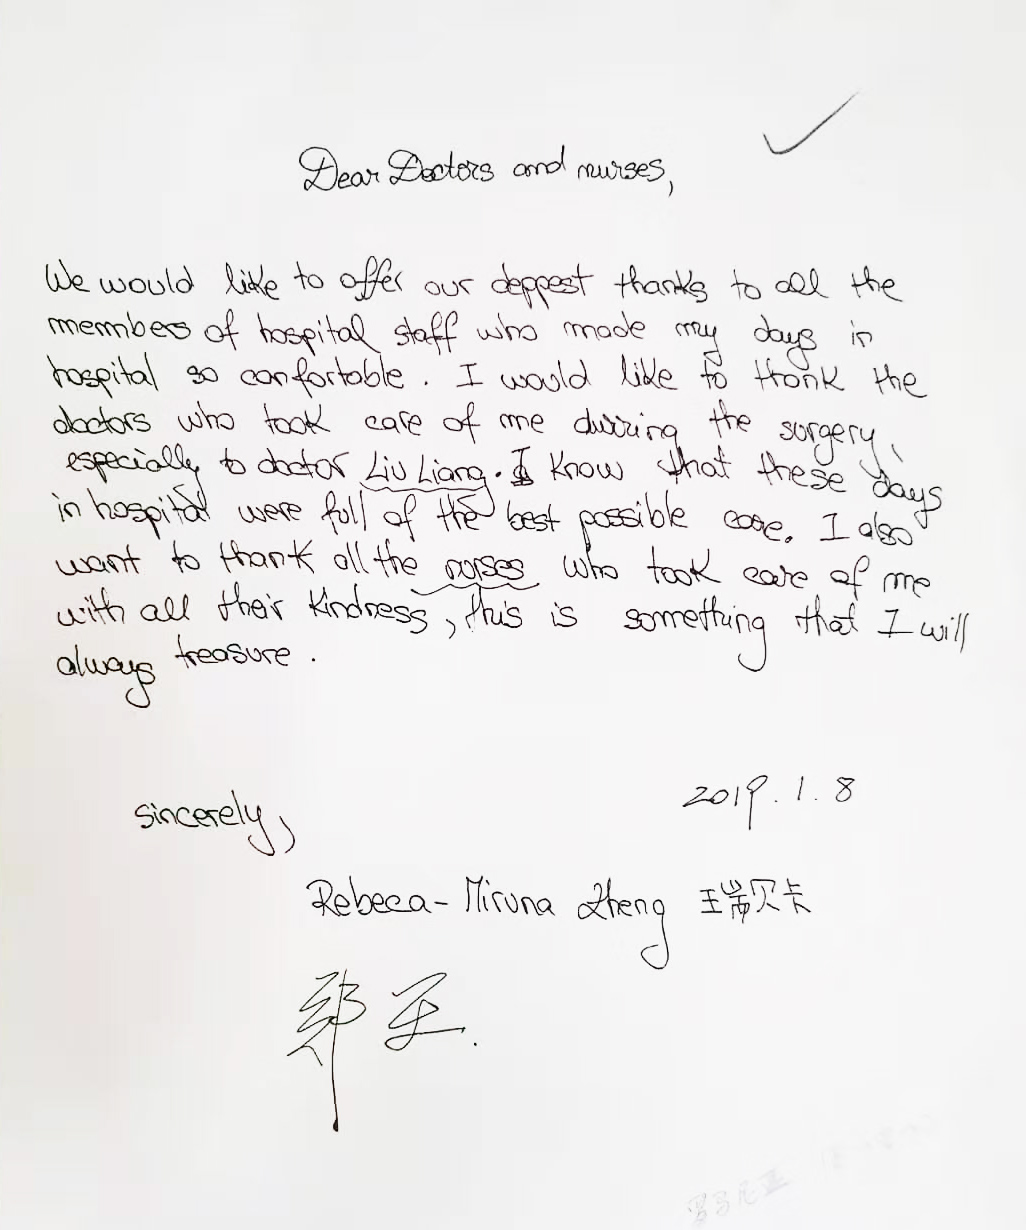 Dear Doctors and nurses,
We would like to offer our deppest thanks to all the
members of hospital staff who made my days in
hospital so confortable. I would like to thank the
doctors who took care of me during the surgery,
especially to doctor Liu Liang. I know that these days
in hospital were full of the best possible care. I also
want to thank all the nurses who took care of me
with all their kindness, this is something that I will
always treasure.
2019.1.8
sincerely,
Rebeca-Miruna Zheng 瑞贝卡
郑
罗马尼亚